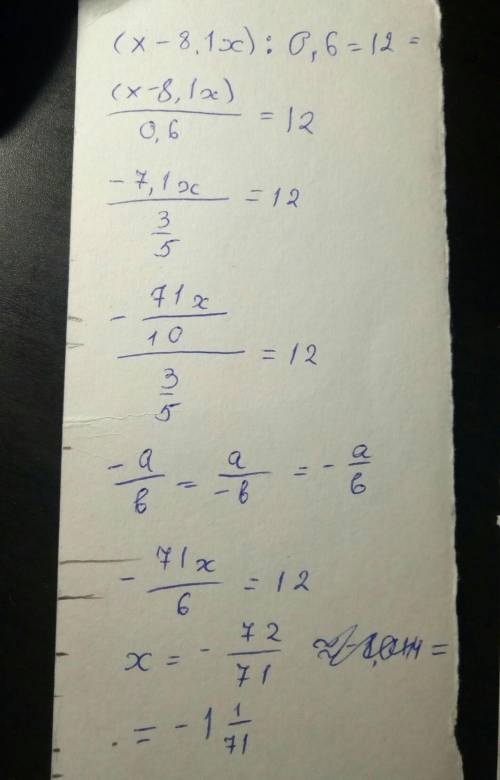 (x-8,1x) : 0,6 = 12 =
(x-8,1x)/0,6 = 12
-7,1x/(3/5) = 12
- (71x/10)/(3/5) = 12
-a/b = a/-b = - a/b
- 71x/6 = 12
x = - 72/71 =
= -1 1/71